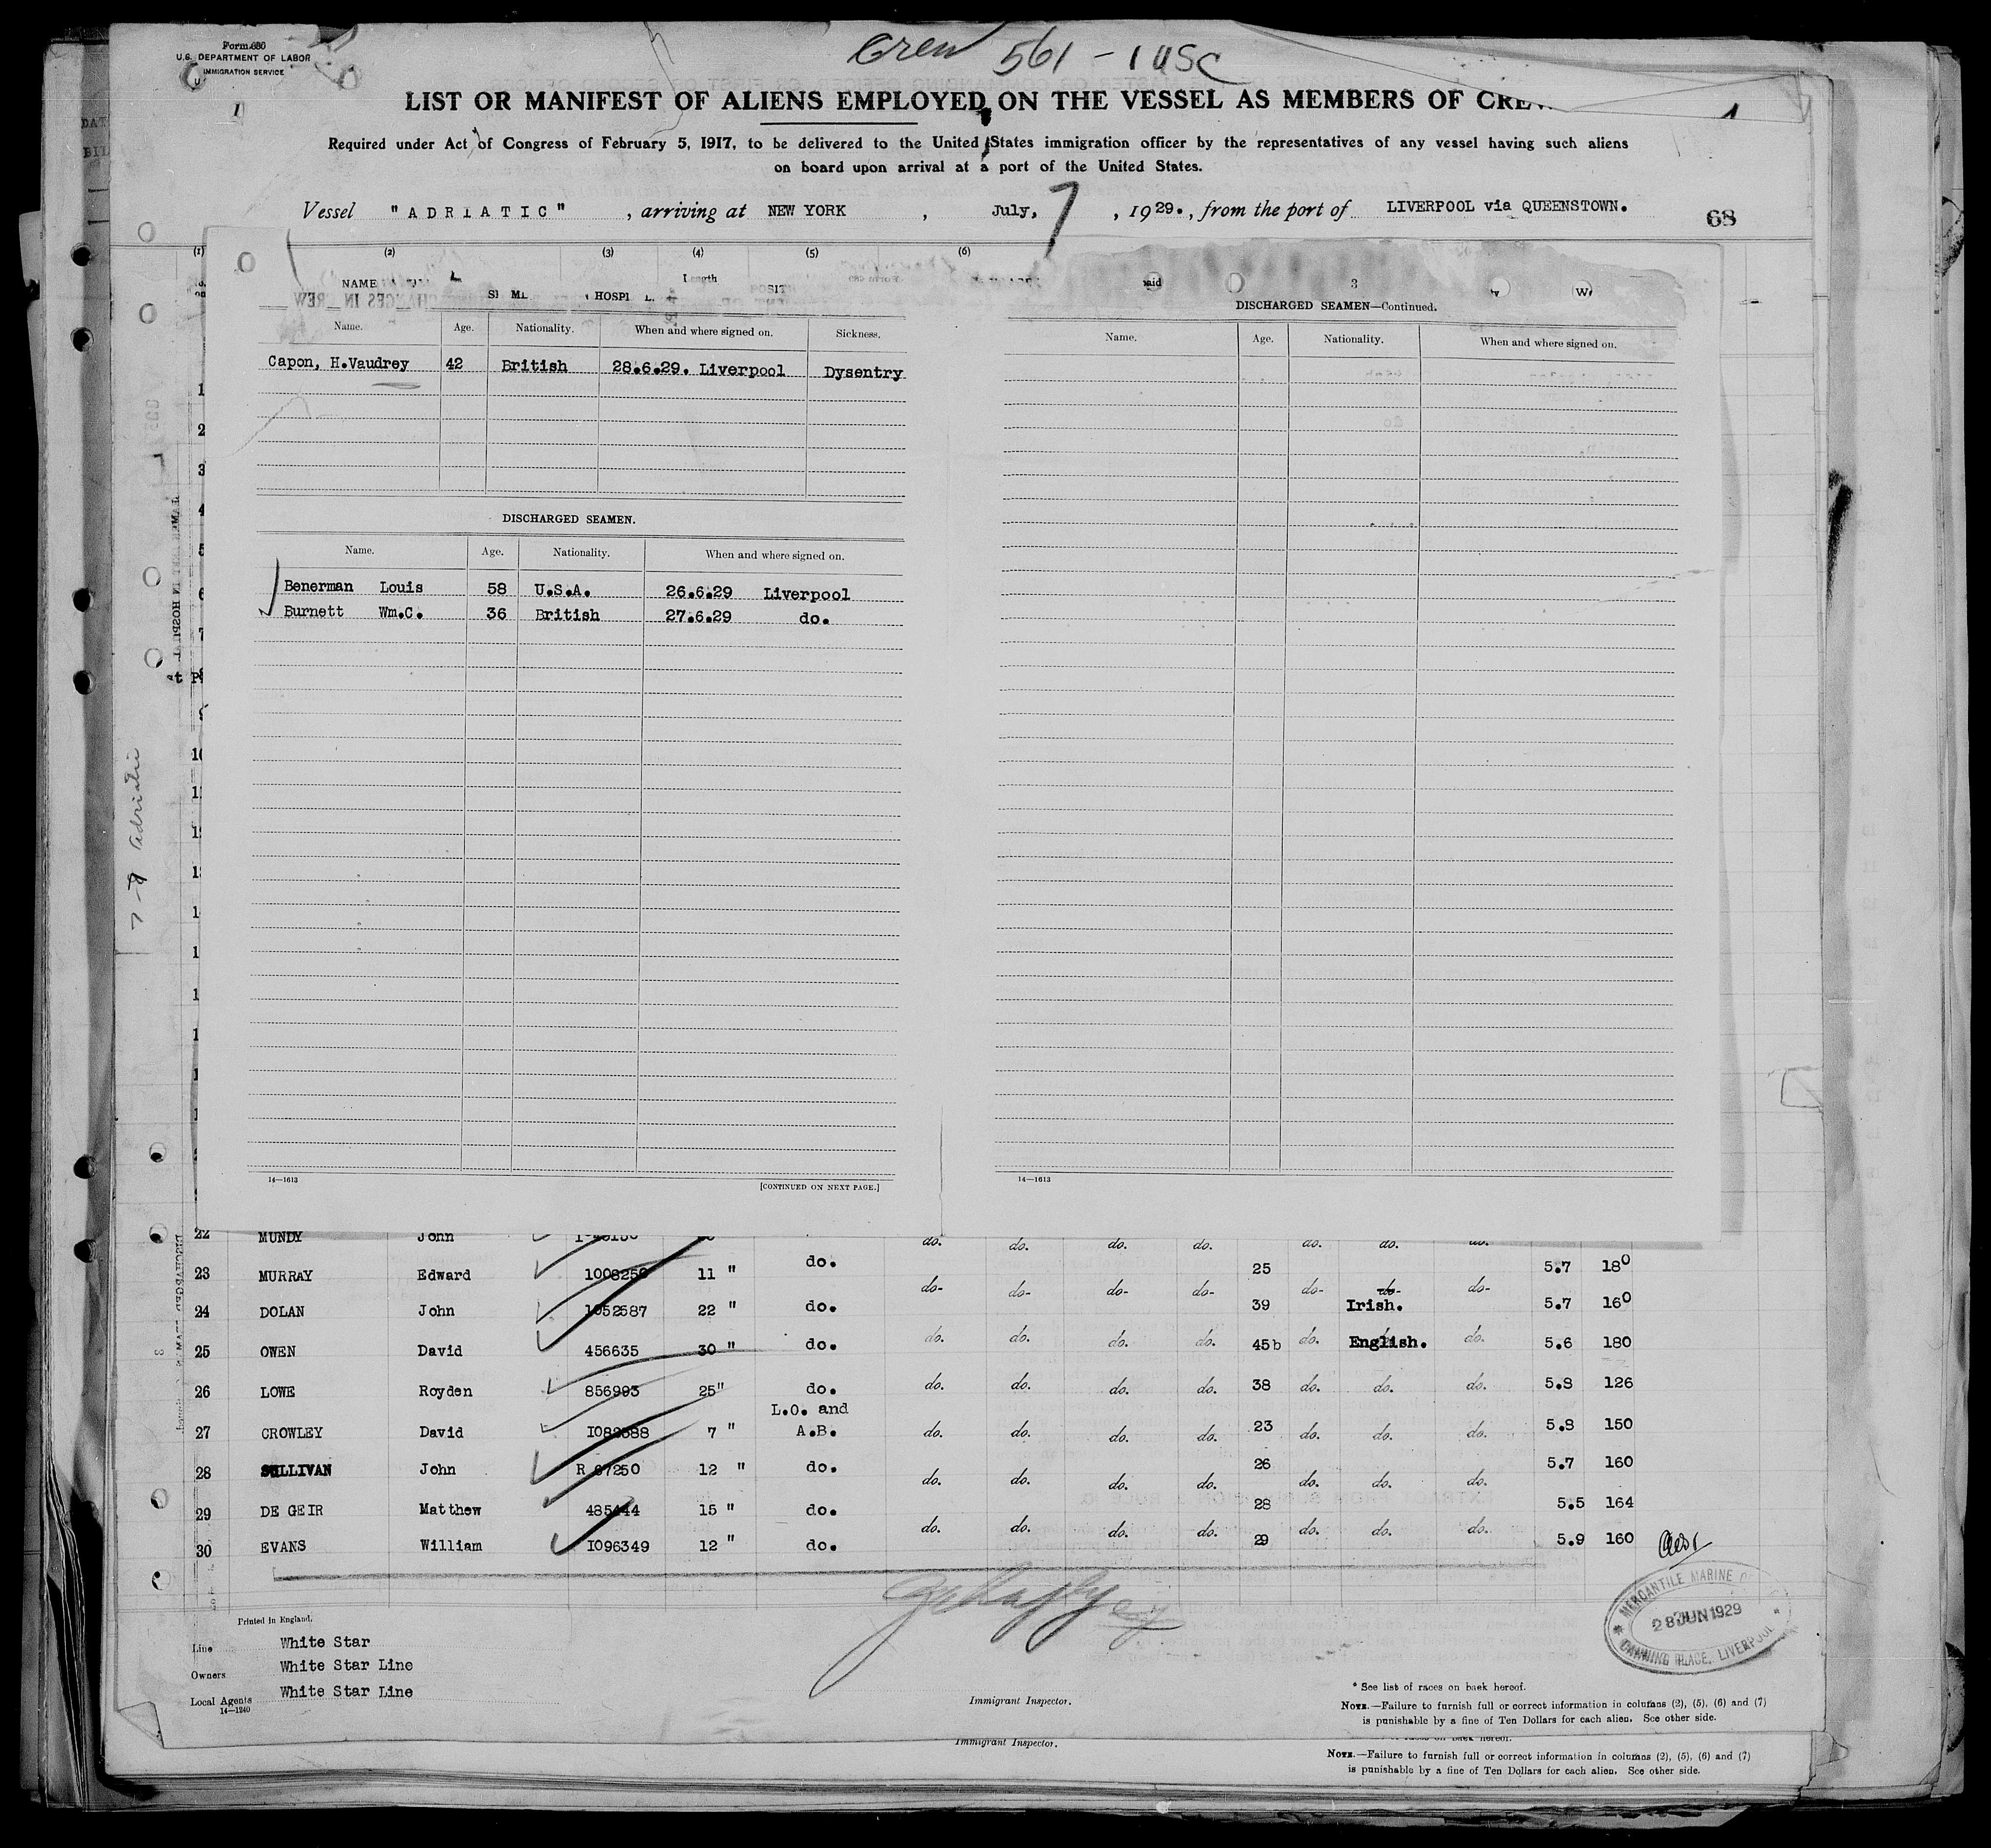 Form 680
U.S. DEPARTMENT OF LABOR
IMMIGRATION SERVICE
Crew 561 - 1 USC
1
LIST OR MANIFEST OF ALIENS EMPLOYED ON THE VESSEL AS MEMBERS OF CREW
Required under Act of Congress of February 5, 1917, to be delivered to the United States immigration officer by the representatives of any vessel having such aliens
on board upon arrival at a port of the United States.
Vessel "ADRIATIC", arriving at NEW YORK, July, 7, 1929., from the port of LIVERPOOL via QUEENSTOWN.
68
(1) (2) (3) (4) (5) (6)
NAME Length
HOSPI
Name. Age. Nationality. When and where signed on. Sickness.
Capon, H.Vaudrey 42 British 28.6.29. Liverpool Dysentry
DISCHARGED SEAMEN.
Name. Age. Nationality. When and where signed on.
Benerman Louis 58 U.S.A. 26.6.29 Liverpool
Burnett Wm.C. 36 British 27.6.29 do.
14—1613 [CONTINUED ON NEXT PAGE.]
DISCHARGED SEAMEN—Continued.
Name. Age. Nationality. When and where signed on.
14—1613
7-7 Adriatic
22 MUNDY John do. do. do. do. do. do. do.
23 MURRAY Edward 1008250 11 " do. do- do- do- do- 25 do- do- do- 5.7 180
24 DOLAN John 1052587 22 " do. 39 Irish. 5.7 160
25 OWEN David 456635 30 " do. do. do. do. do. 45b do. English. do. 5.6 180
26 LOWE Royden 856993 25" do. do. do. do. do. 38 do. do. do. 5.8 126
L.O. and
27 CROWLEY David 7 " A.B. do. do. do. do. 23 do. do. do. 5.8 150
28 SULLIVAN John R 67250 12 " do. do. do. do. do. 26 do. do. do. 5.7 160
29 DE GEIR Matthew 485444 15 " do. do. do. do. do. 28 do. do. do. 5.5 164
30 EVANS William I096349 12 " do. 29 5.9 160
MERCANTILE MARINE
28 JUN 1929
CANNING PLACE, LIVERPOOL
Printed in England.
Line White Star
Owners White Star Line
Local Agents White Star Line
14—1240
Immigrant Inspector.
* See list of races on back hereof.
NOTE.—Failure to furnish full or correct information in columns (2), (5), (6) and (7)
is punishable by a fine of Ten Dollars for each alien. See other side.
Immigrant Inspector.
NOTE.—Failure to furnish full or correct information in columns (2), (5), (6) and (7)
is punishable by a fine of Ten Dollars for each alien. See other side.